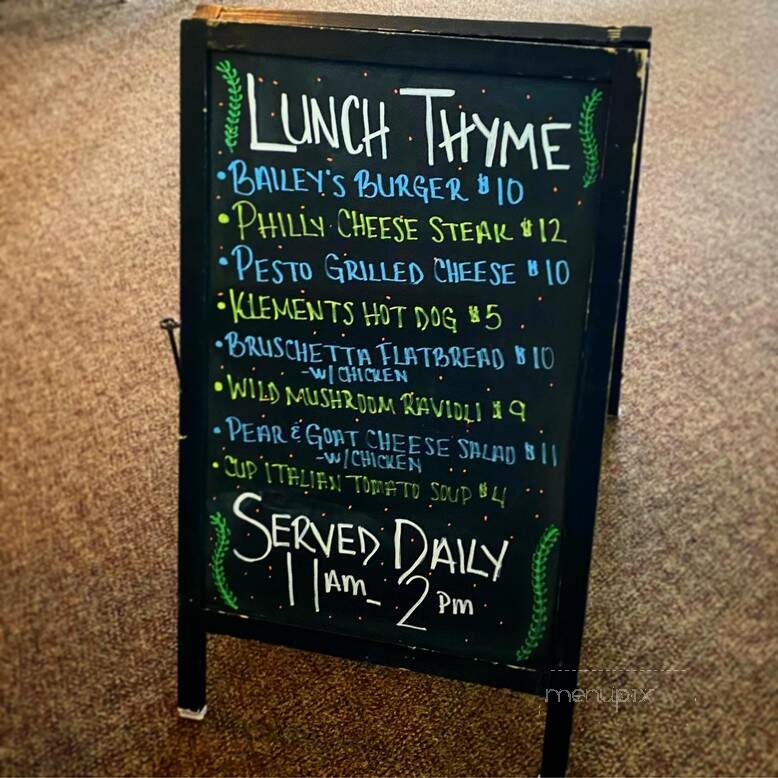 LUNCH THYME
• BAILEY'S BURGER $10
• PHILLY CHEESE STEAK $12
• PESTO GRILLED CHEESE $10
• KLEMENTS HOT DOG $5
• BRUSCHETTA FLATBREAD $10
-W/CHICKEN
• WILD MUSHROOM RAVIOLI $9
• PEAR & GOAT CHEESE SALAD $11
-W/CHICKEN
• CUP ITALIAN TOMATO SOUP $4
SERVED DAILY
11AM - 2PM
menupix